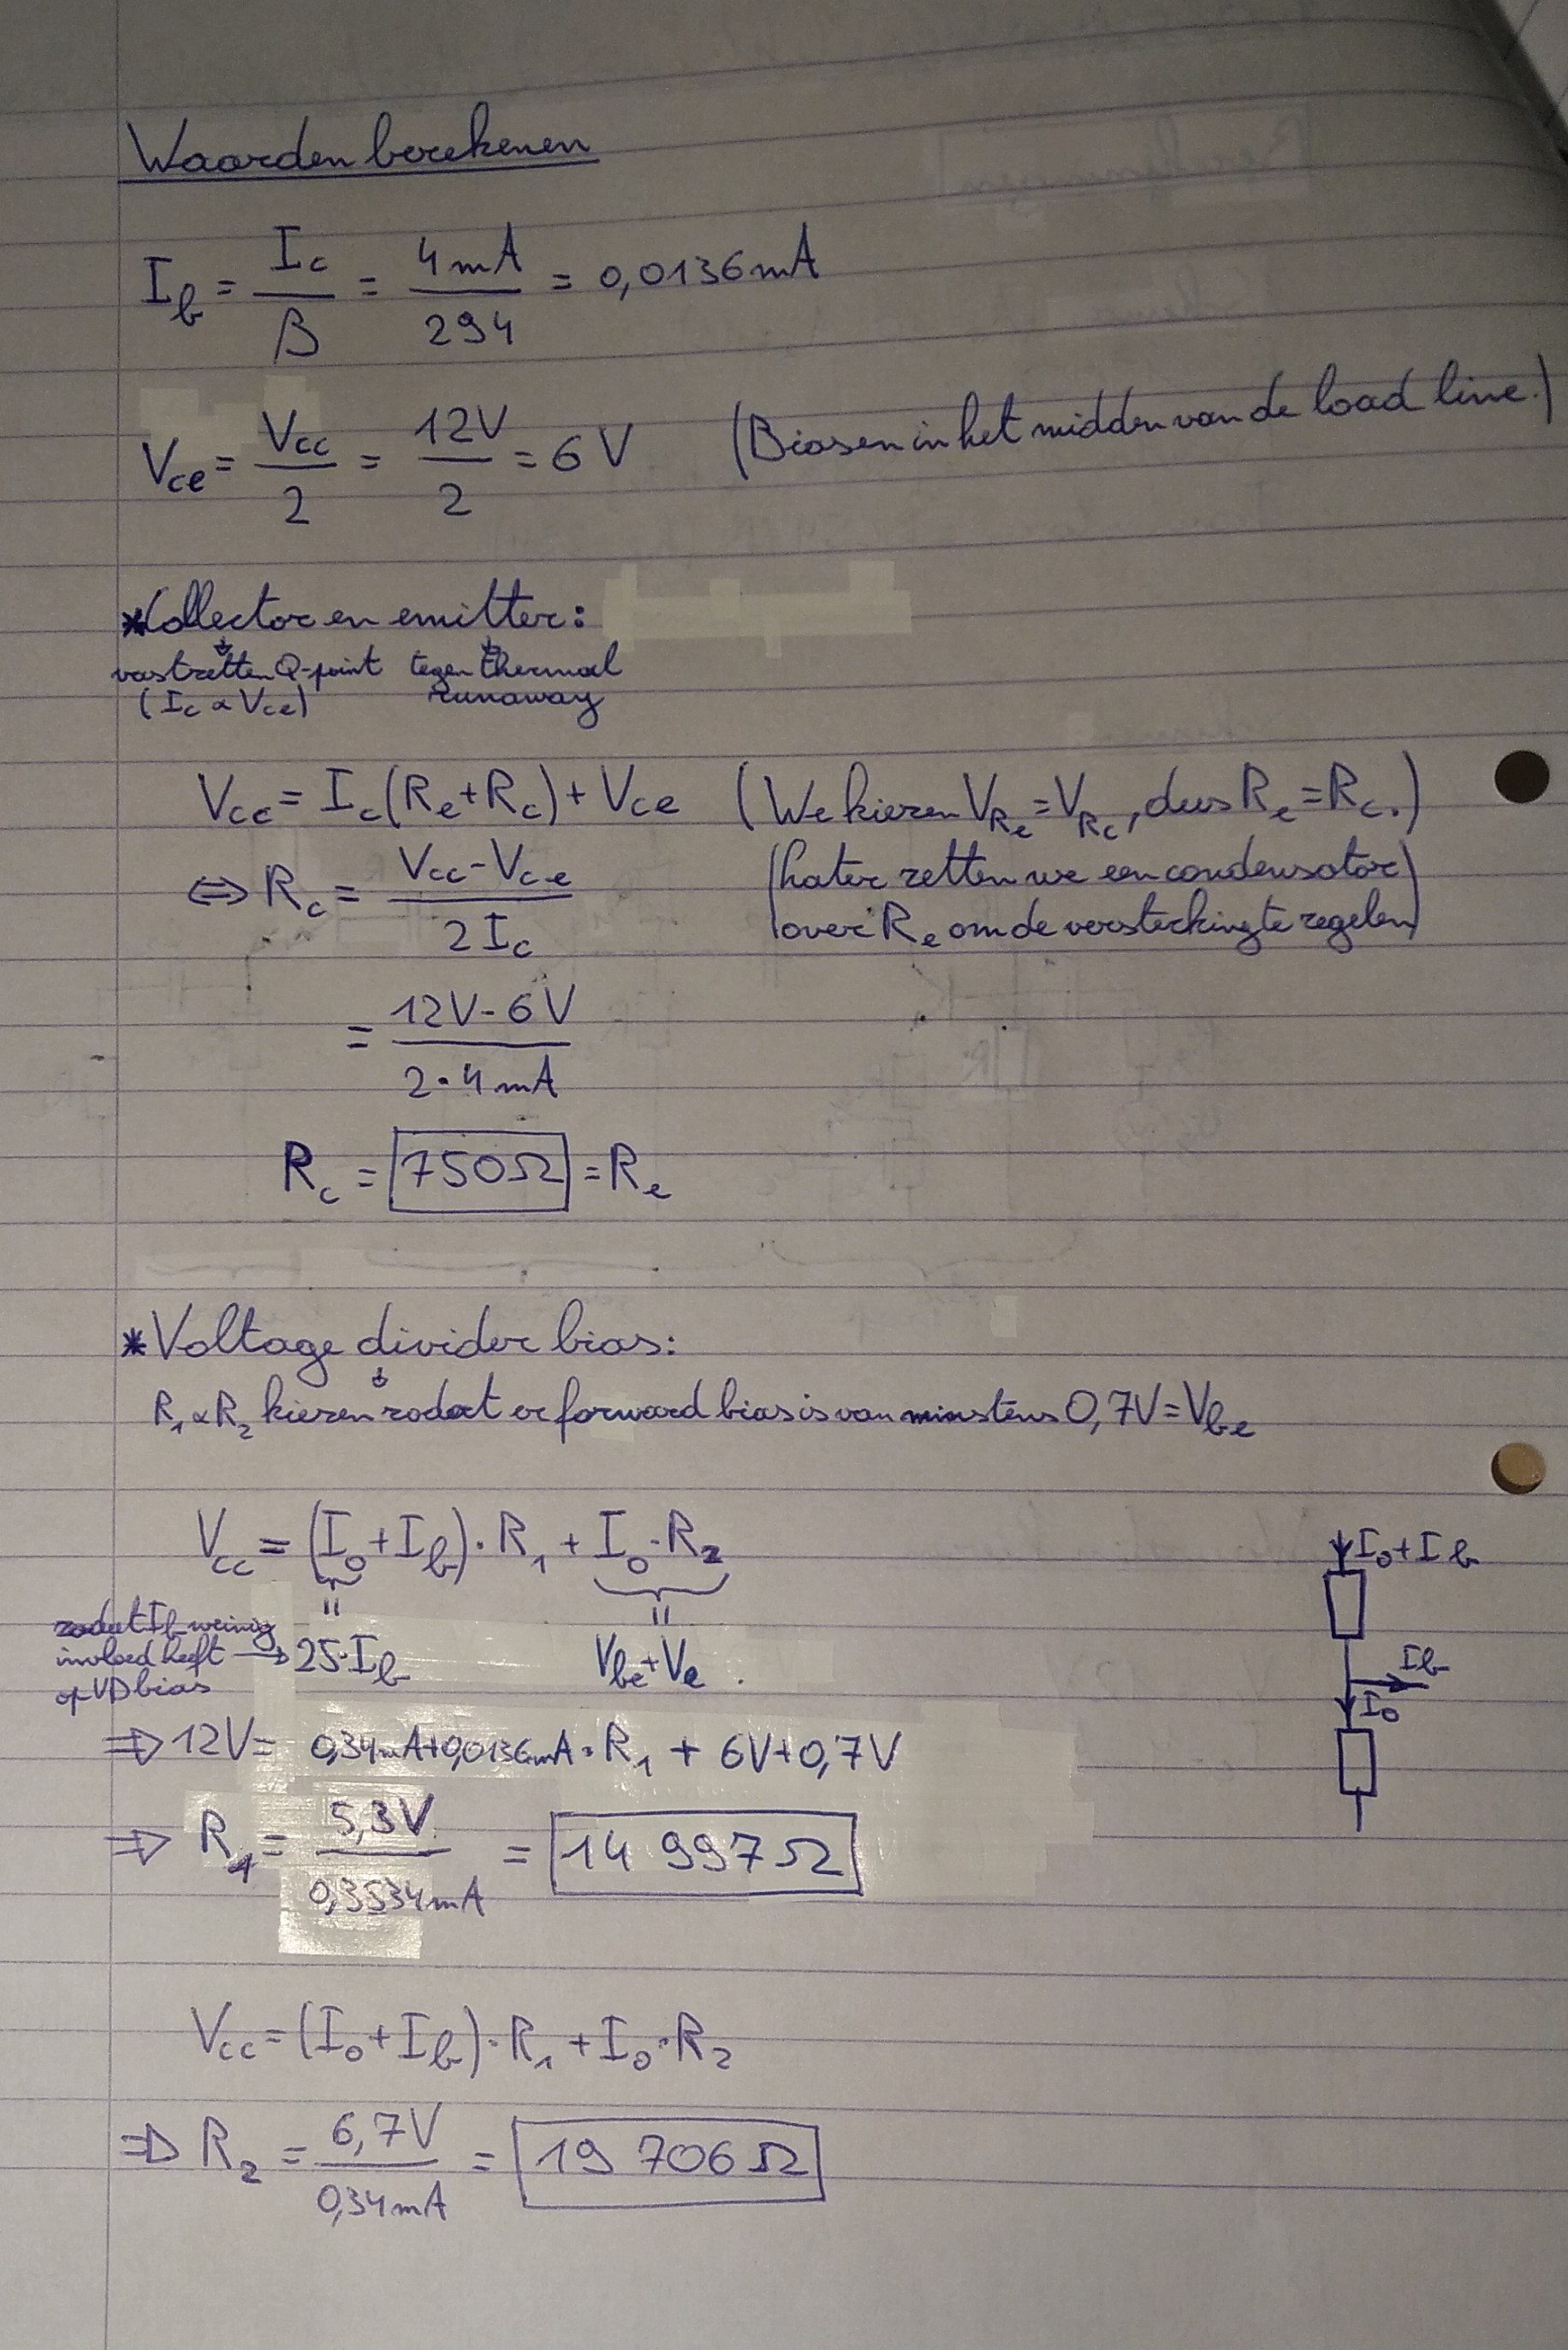 Waarden berekenen
I_b = I_c / β = 4mA / 294 = 0,0136mA
V_ce = V_cc / 2 = 12V / 2 = 6V (Biasen in het midden van de load line.)
*Collector en emitter:
vastzetten Q-point tegen thermal
(I_c ∝ V_ce) runaway
V_cc = I_c(R_e+R_c)+V_ce (We kiezen V_Re=V_Rc, dus R_e=R_c.)
⇔ R_c = V_cc-V_ce / 2I_c (Later zetten we een condensator
over R_e om de versterking te regelen)
= 12V-6V / 2·4mA
R_c = 750Ω = R_e
*Voltage divider bias:
R_1 ∝ R_2 kiezen zodat er forward bias is van minstens 0,7V=V_be
V_cc = (I_0+I_b)·R_1 + I_0·R_2
I_0+I_b
zodat I_b weinig
invloed heeft → 25·I_b V_be+V_e
op VD bias
I_b
I_0
⇒ 12V = 0,34mA+0,0136mA·R_1 + 6V+0,7V
⇒ R_1 = 5,3V / 0,3534mA = 14 997Ω
V_cc = (I_0+I_b)·R_1+I_0·R_2
⇒ R_2 = 6,7V / 0,34mA = 19 706Ω